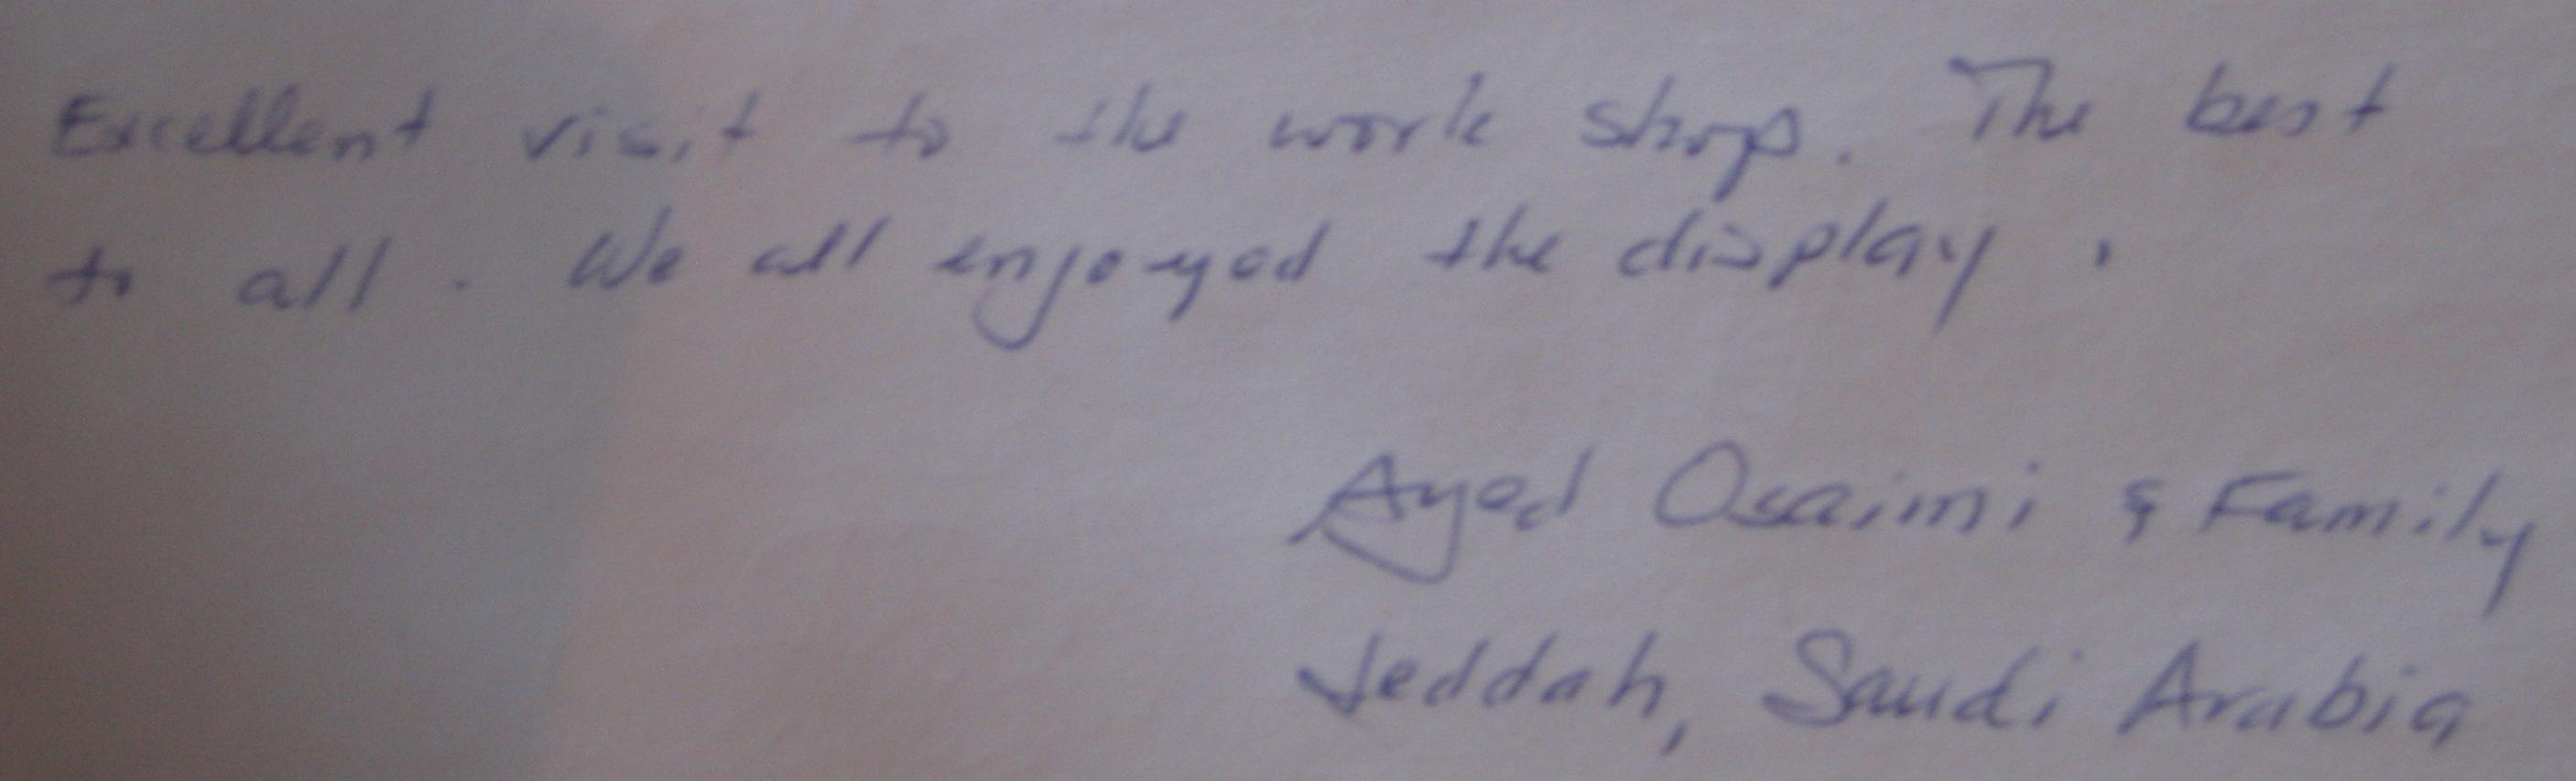 Excellent visit to the work shop. The best
to all. We all enjoyed the display.
Ayed Osaimi & Family
Jeddah, Saudi Arabia